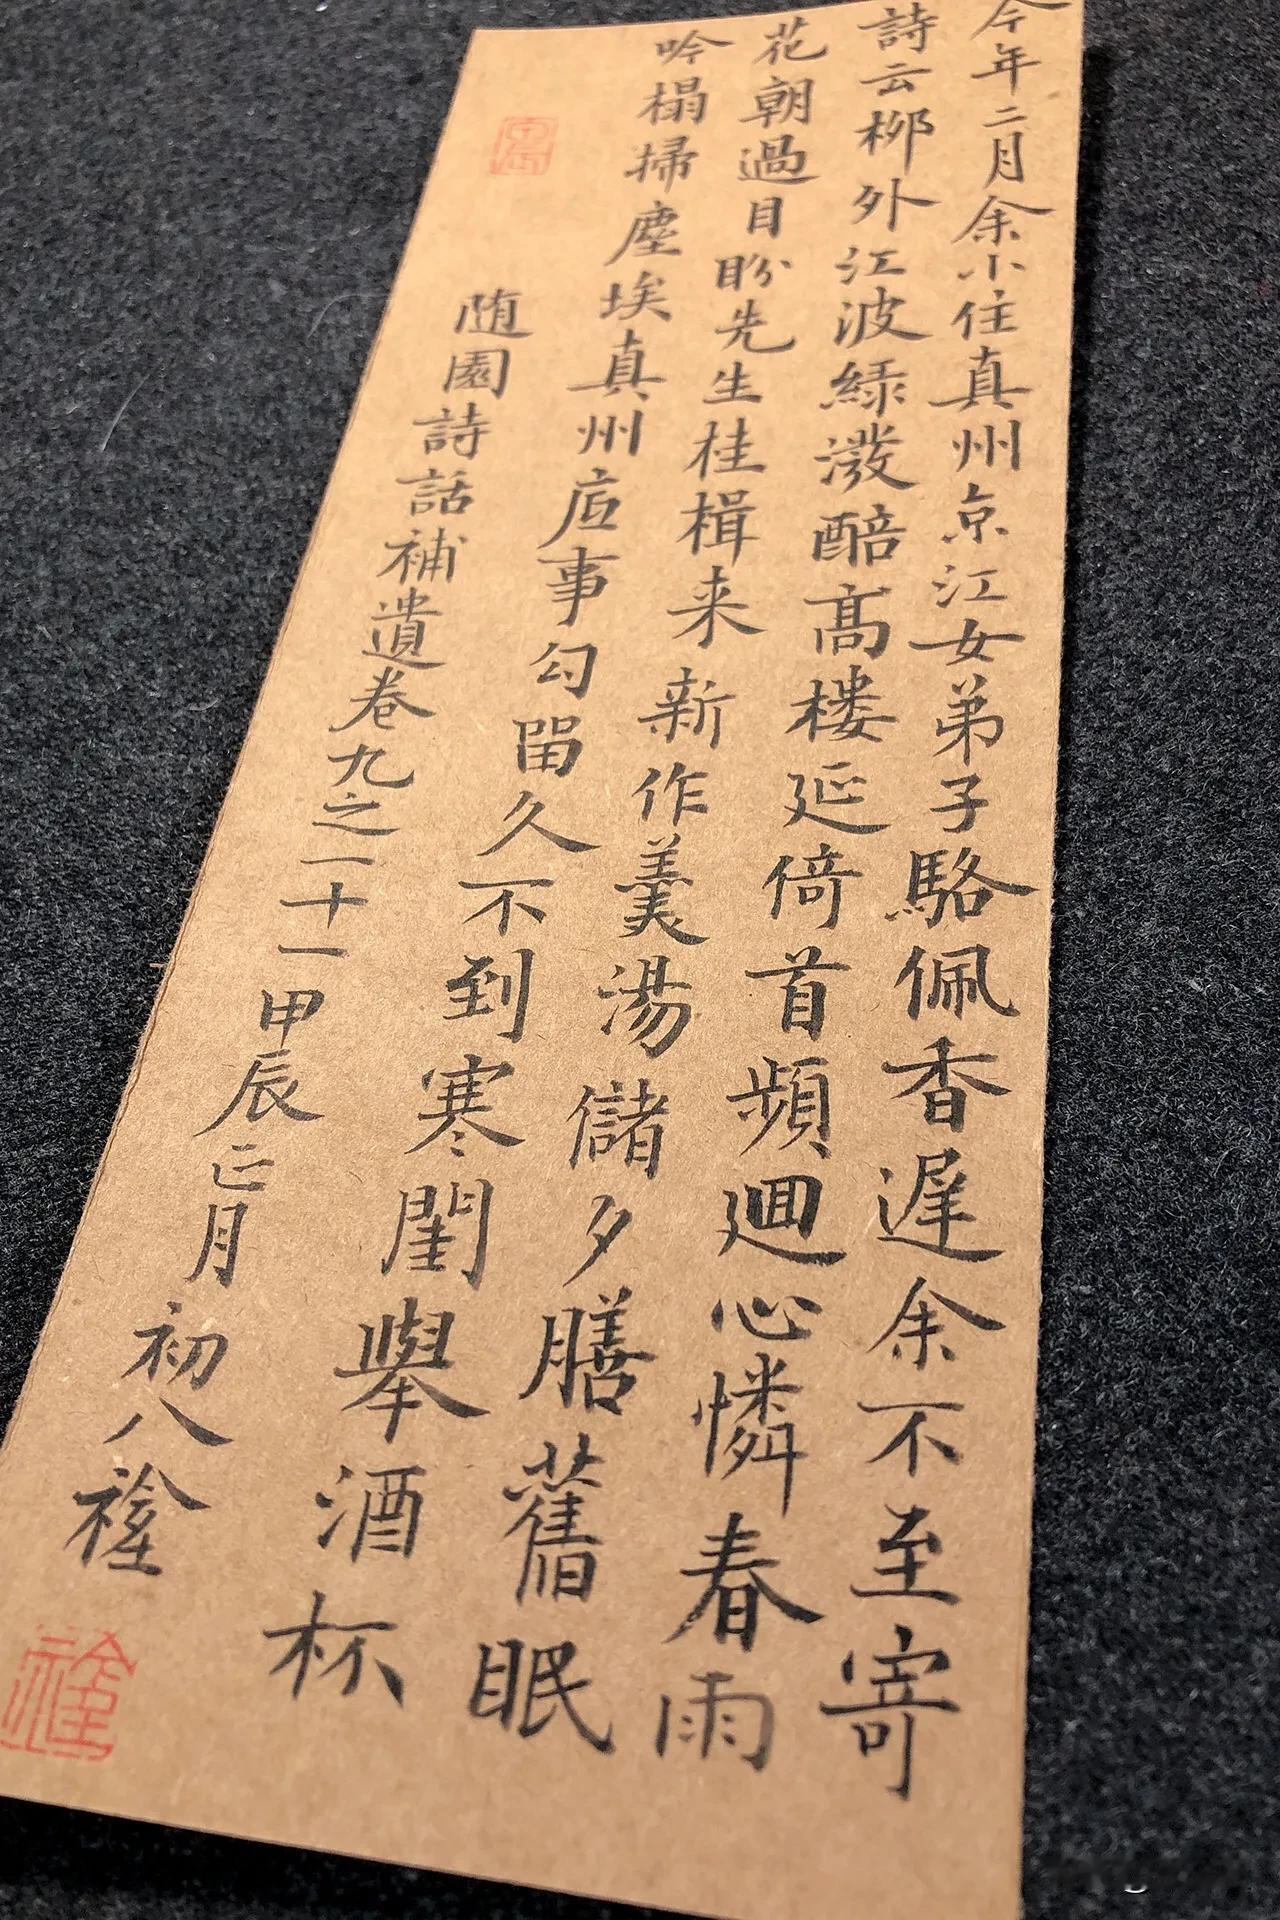 今年二月余小住真州京江女弟子駱佩香遲余不至寄
詩云栁外江波綠潑醅高楼延倚首頻廻心憐春雨
花朝過目盼先生桂楫来新作羹湯儲夕膳舊眠
吟榻掃塵埃真州底事勾留久不到寒閨舉酒杯
随園詩話補遺卷九之二十一甲辰正月初八